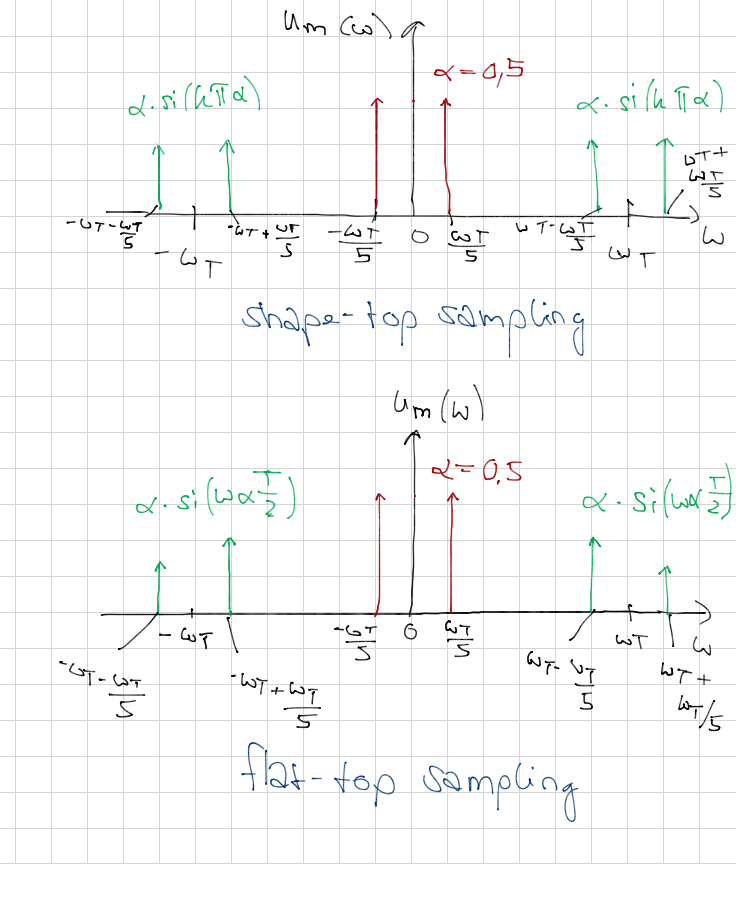 um(ω)
α=0,5
α·si(kπα)
α·si(kπα)
-ωT-ωT/5
-ωT
-ωT+ωT/5
-ωT/5
0
ωT/5
ωT-ωT/5
ωT
ωT+ωT/5
ω
shape-top sampling
um(ω)
α=0.5
α·si(ωαT/2)
α·si(ωαT/2)
-ωT-ωT/5
-ωT
-ωT+ωT/5
-ωT/5
0
ωT/5
ωT-ωT/5
ωT
ωT+ωT/5
ω
flat-top sampling